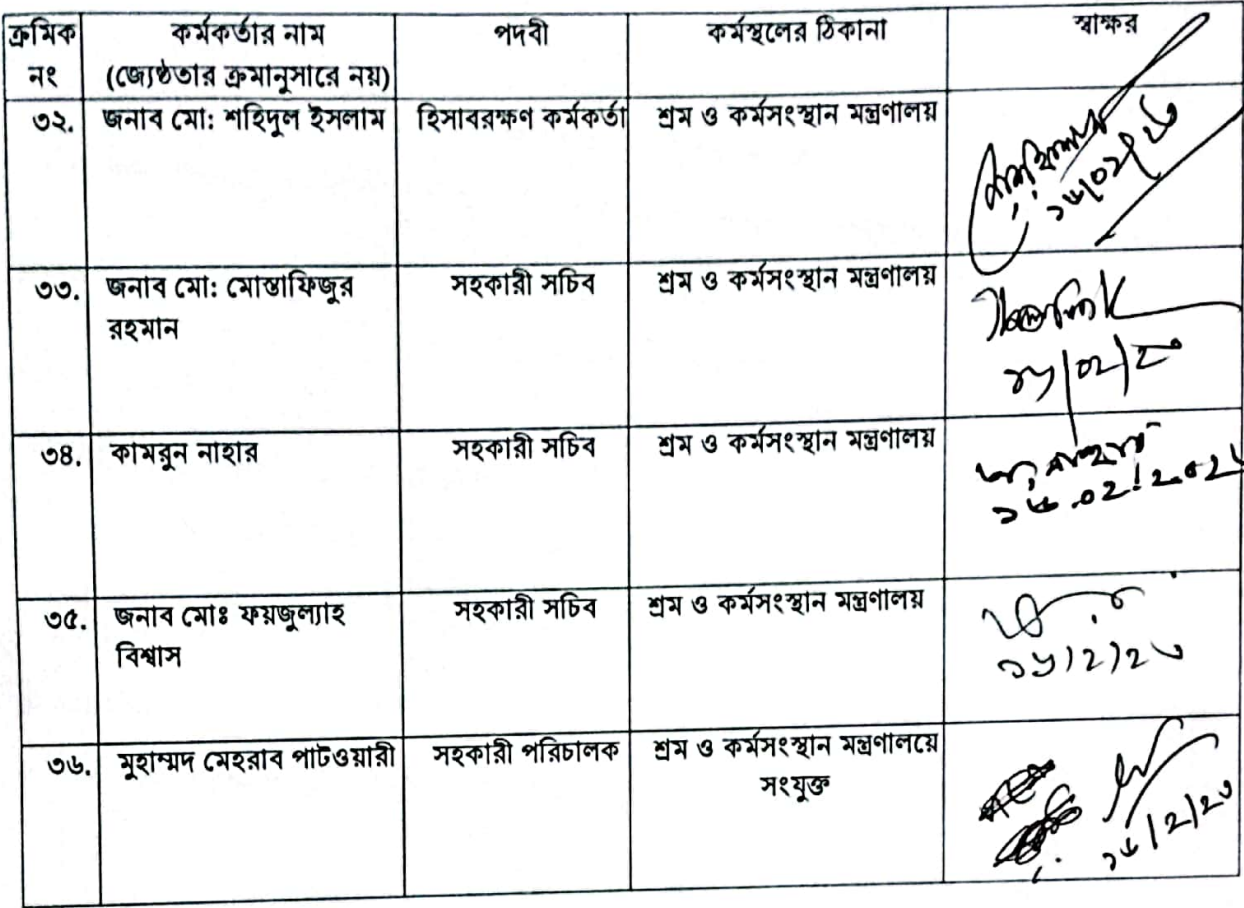 ক্রমিক নং কর্মকর্তার নাম (জ্যেষ্ঠতার ক্রমানুসারে নয়) পদবী কর্মস্থলের ঠিকানা স্বাক্ষর
৩২. জনাব মো: শহিদুল ইসলাম হিসাবরক্ষণ কর্মকর্তা শ্রম ও কর্মসংস্থান মন্ত্রণালয়
৩৩. জনাব মো: মোস্তাফিজুর রহমান সহকারী সচিব শ্রম ও কর্মসংস্থান মন্ত্রণালয়
৩৪. কামরুন নাহার সহকারী সচিব শ্রম ও কর্মসংস্থান মন্ত্রণালয়
৩৫. জনাব মোঃ ফয়জুল্যাহ বিশ্বাস সহকারী সচিব শ্রম ও কর্মসংস্থান মন্ত্রণালয়
৩৬. মুহাম্মদ মেহরাব পাটওয়ারী সহকারী পরিচালক শ্রম ও কর্মসংস্থান মন্ত্রণালয়ে সংযুক্ত